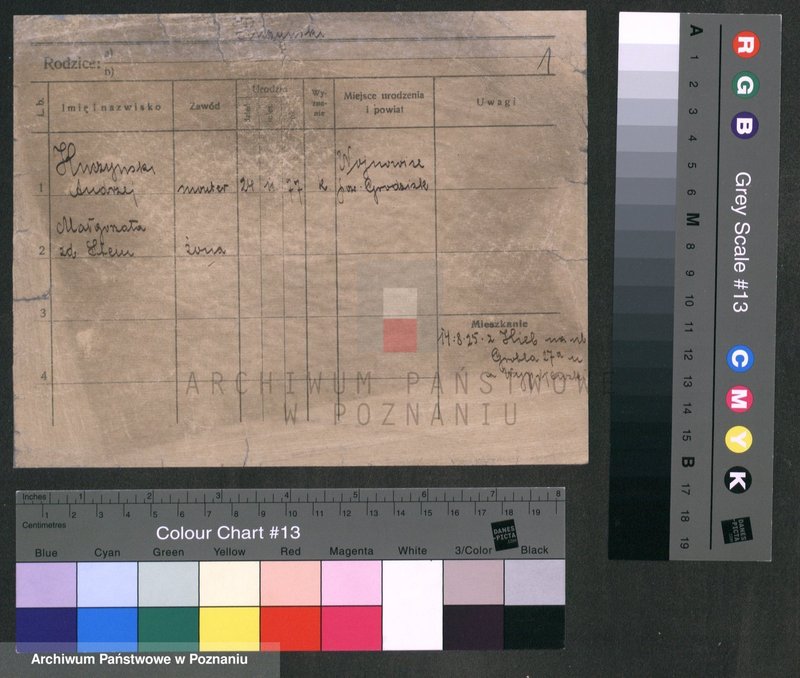 Rodzice: a)
b)
1
L. b.
Imię i nazwisko
Zawód
Urodz.
Wy-
zna-
nie
Miejsce urodzenia
i powiat
Uwagi
1
Andrzej
monter
24
11
77
k
Wojnowice
pow. Grodzisk
2
Małgorzata
zd.
żona
3
4
Mieszkanie
14.8.25. z
27a
ARCHIWUM PAŃSTWOWE
W POZNANIU
Inches 1 2 3 4 5 6 7 8
1 2 3 4 5 6 7 8 9 10 11 12 13 14 15 16 17 18 19
Centimetres
Colour Chart #13
DANES
PICTA
.COM
Blue Cyan Green Yellow Red Magenta White 3/Color Black
Archiwum Państwowe w Poznaniu
A 1 2 3 4 5 6 M 8 9 10 11 12 13 14 15 B 17 18 19
R G B
Grey Scale #13
C M Y K
DANES
PICTA
.COM